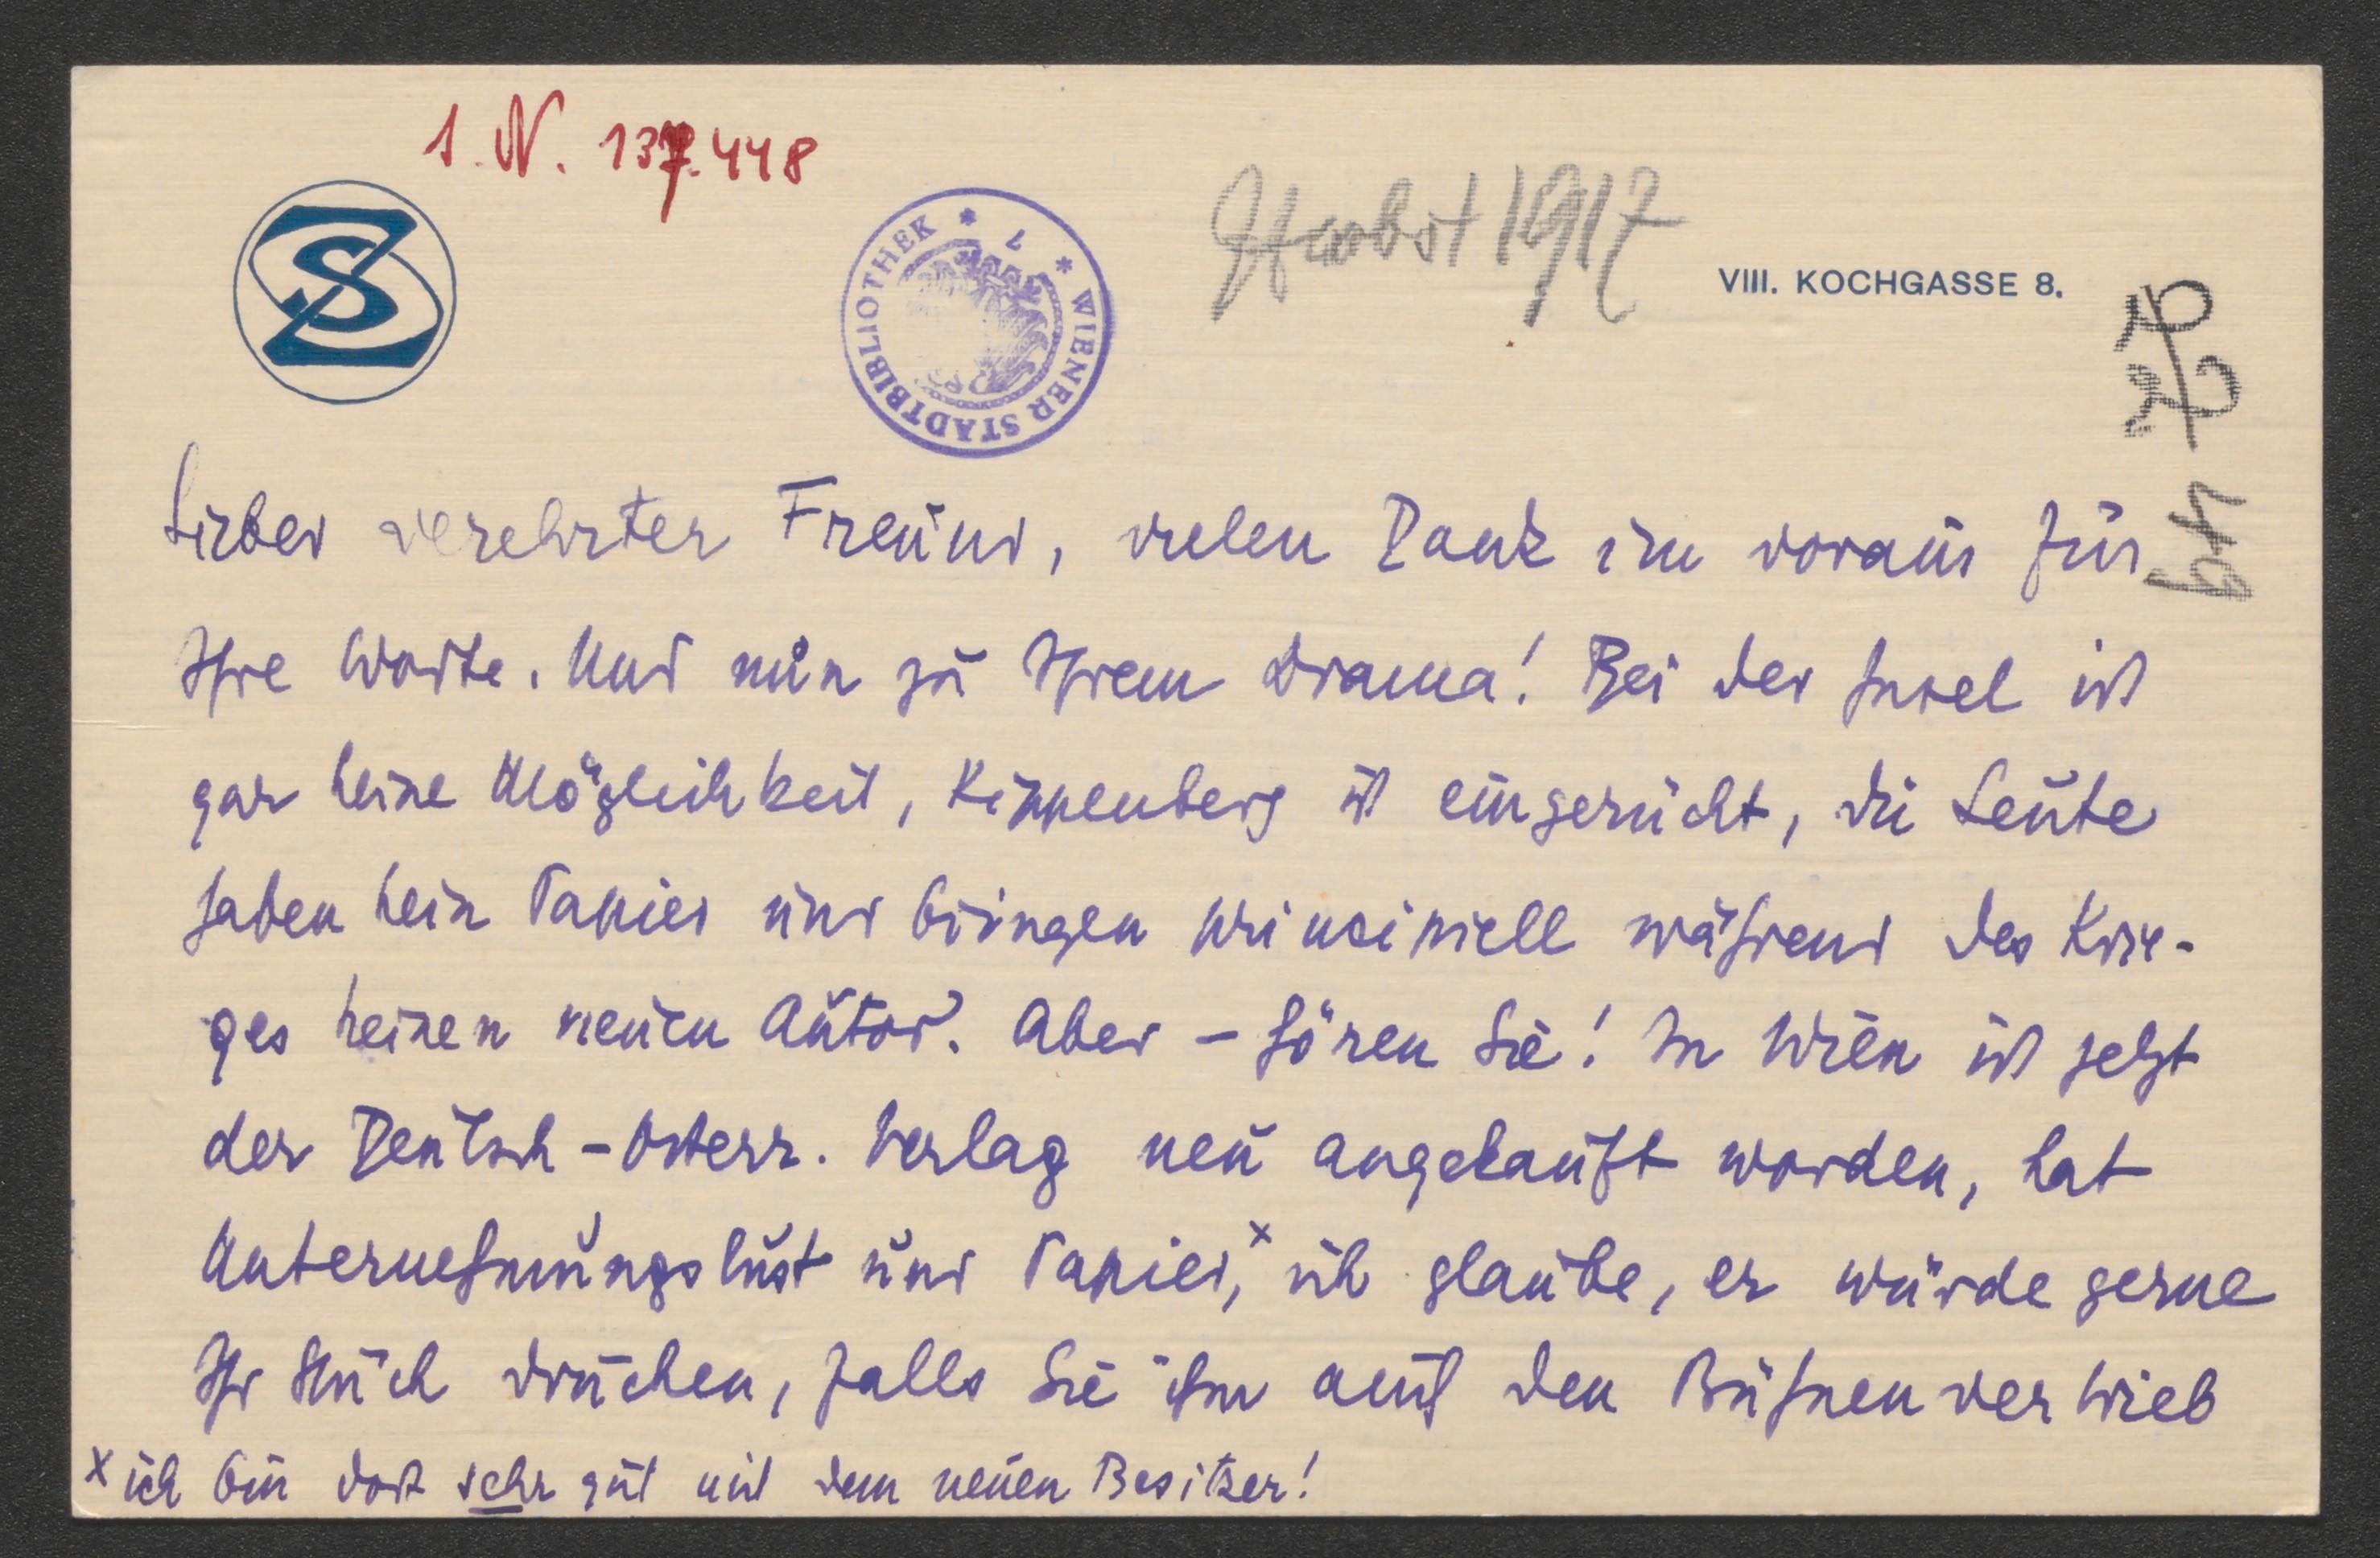 I.N. 137.448
SZ
WIENER STADTBIBLIOTHEK
Herbst 1917
VIII. KOCHGASSE 8.
Lieber verehrter Freund, vielen Dank im voraus für
Ihre Worte. Und nun zu Ihrem Drama! Bei der Insel ist
gar keine Möglichkeit, Kippenberg ist eingerückt, die Leute
haben kein Papier und bringen principiell während des Krie-
ges keinen neuen Autor. Aber – hören Sie! In Wien ist jetzt
der Deutsch-Österr. Verlag neu angekauft worden, hat
Unternehmungslust und Papier,x ich glaube, er würde gerne
Ihr Stück drucken, falls Sie ihm auch den Bühnenvertrieb
x ich bin dort sehr gut mit dem neuen Besitzer!